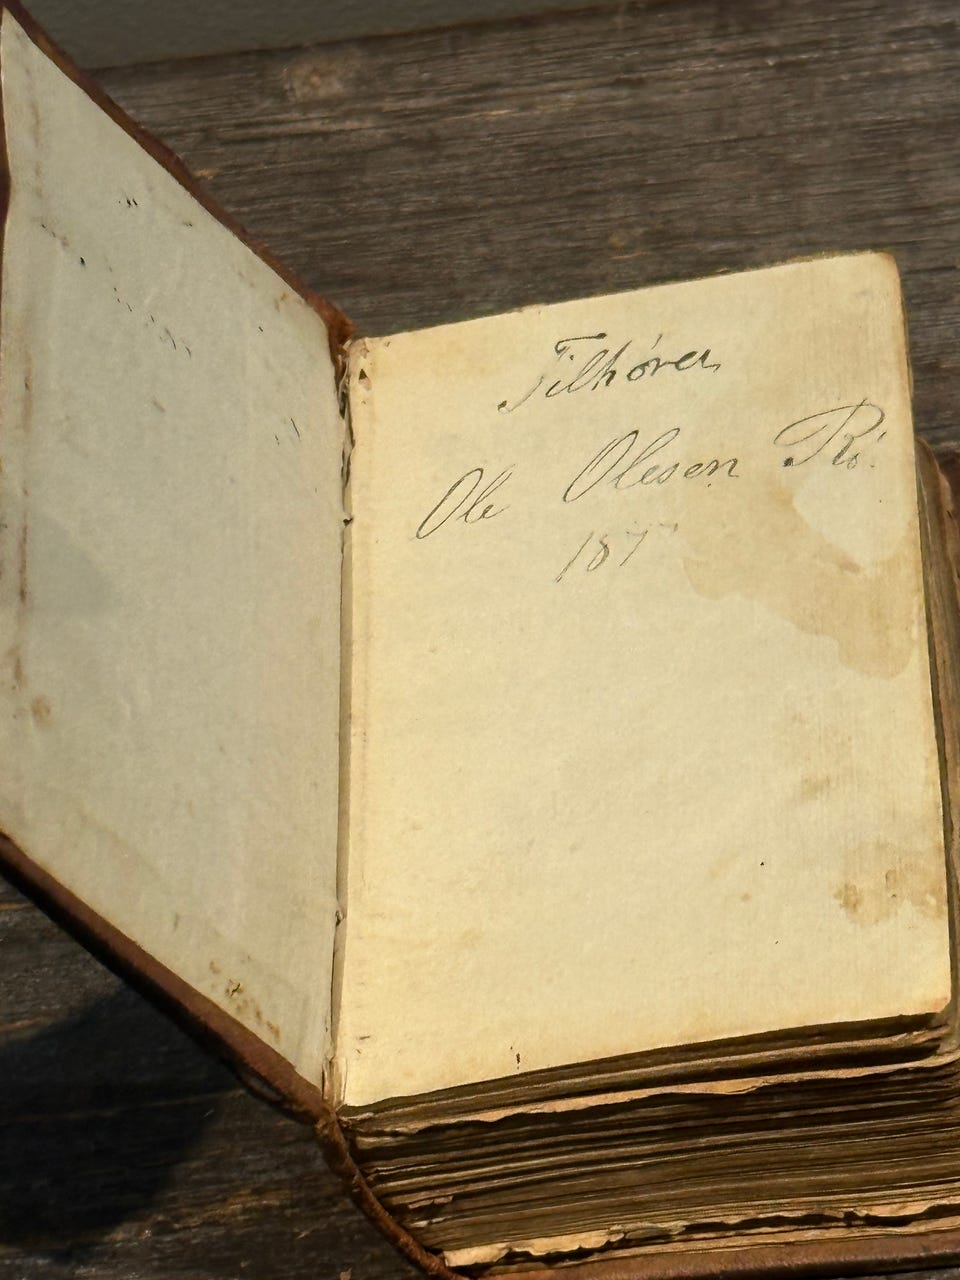 Tilhører
Ole Olesen
187